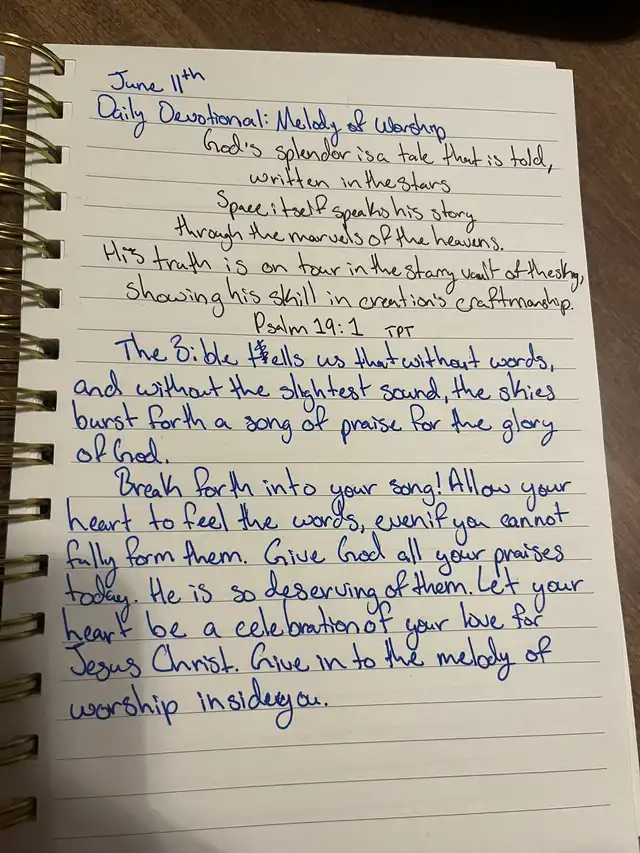 June 11th
Daily Devotional: Melody of Worship
God's splendor is a tale that is told,
written in the stars
Space itself speaks his story
through the marvels of the heavens.
His truth is on tour in the starry vault of the sky,
showing his skill in creation's craftmanship.
Psalm 19:1 TPT
The Bible tells us that without words,
and without the slightest sound, the skies
burst forth a song of praise for the glory
of God.
Break forth into your song! Allow your
heart to feel the words, even if you cannot
fully form them. Give God all your praises
today. He is so deserving of them. Let your
heart be a celebration of your love for
Jesus Christ. Give in to the melody of
worship inside you.